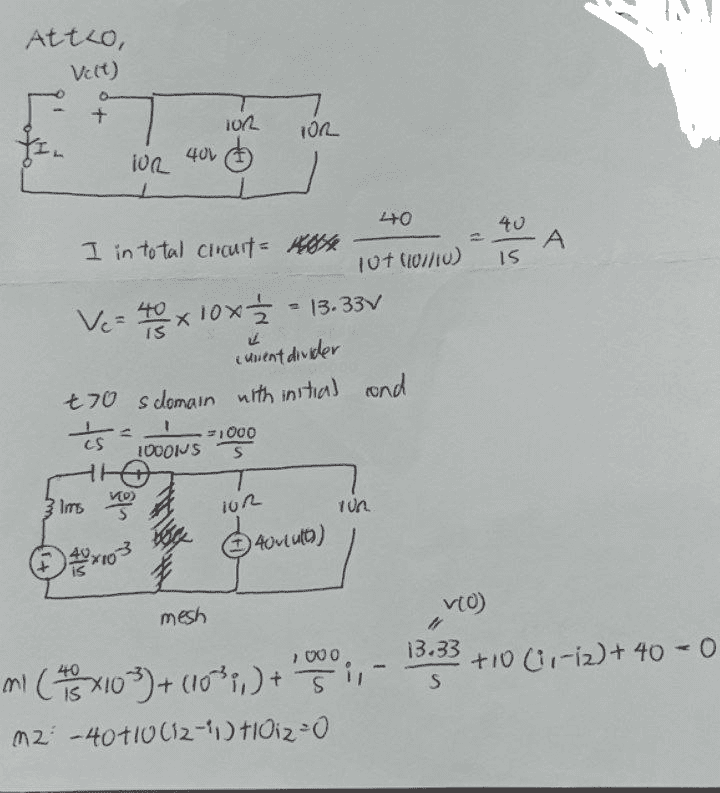 At t<0,
Vc(t)
- +
IL 10Ω 40V 10Ω 10Ω
I in total circuit = 40 / (10+(10//10)) = 40/15 A
Vc = 40/15 × 10 × 1/2 = 13.33V
current divider
t>0 s domain with initial cond
1/CS = 1/(1000NS) = 1000/S
1ms V(0)/S 10Ω 10Ω
- + 40/15 ×10^-3 40V(u(t))
mesh
V(0)
m1 (40/15 ×10^-3) + (10^-3 i1) + 1000/S i1 - 13.33/S + 10 (i1-i2) + 40 = 0
m2: -40+10(i2-i1)+10i2=0